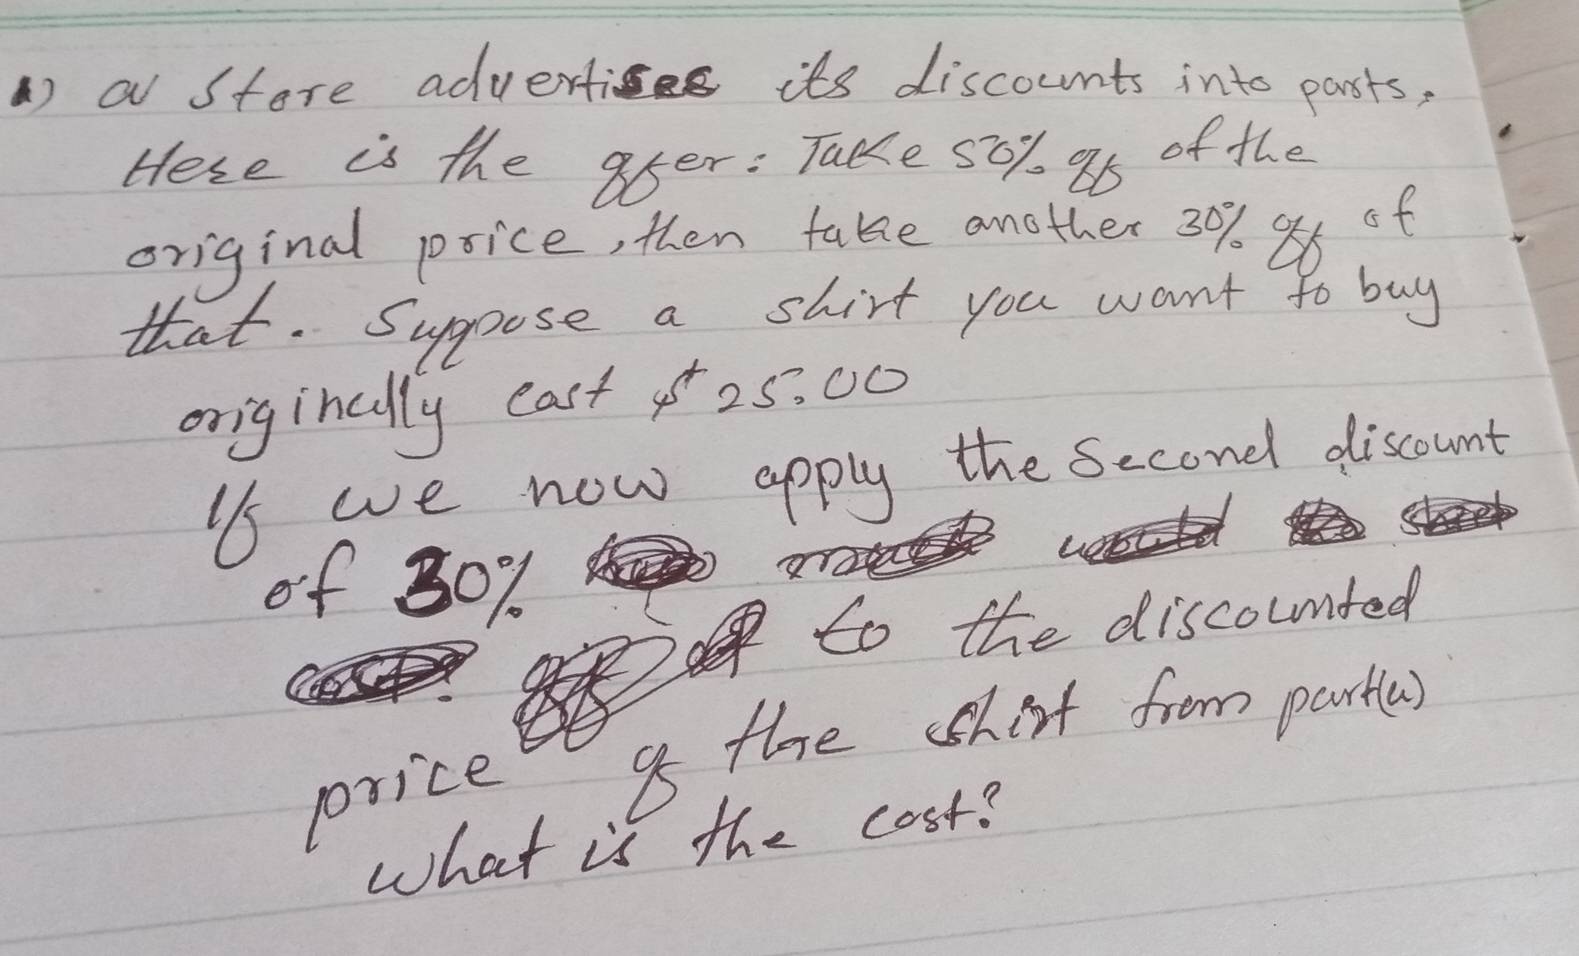 1) a store advertises its discounts into parts.
Here is the offer: Take 50% off of the
original price, then take another 30% off of
that. Suppose a shirt you want to buy
originally cost $25.00
If we now apply the second discount
of 30%
to the discounted
price of the shirt from part(a)
what is the cost?